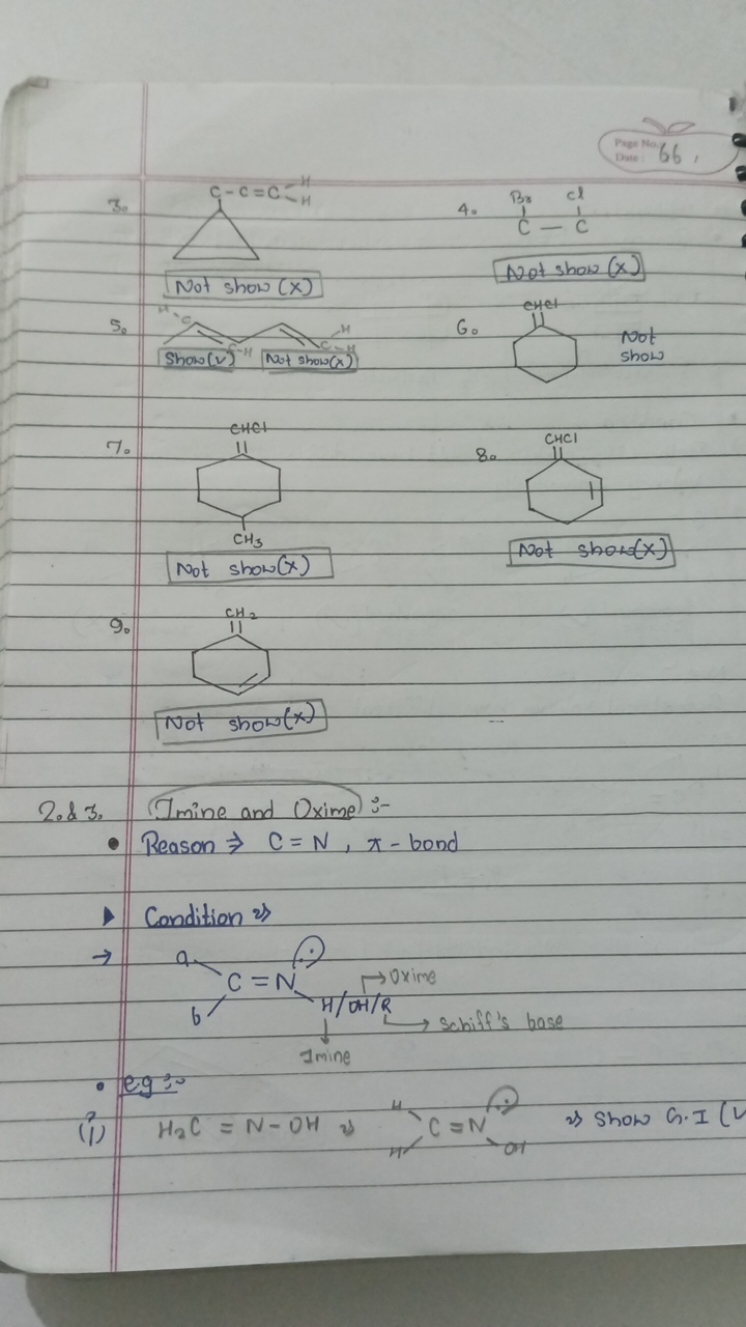 Page No.: 66.
Date:
3. C-C=C-H
-H
Not show (x)
4. Br Cl
C — C
Not show (x)
5. H-C C-H H
C-H
Show(✓) Not show(x)
6. CHCl
Not
show
7. CHCl
CH3
Not show(x)
8. CHCl
Not show(x)
9. CH2
Not show(x)
2.&3. Imine and Oxime :-
• Reason ⇒ C=N, π-bond
Condition
→ a
C=N
b H/OH/R
→ Oxime
→ Schiff's base
Imine
• eg :-
(i) H2C = N-OH
H
C=N
H OH
show G.I